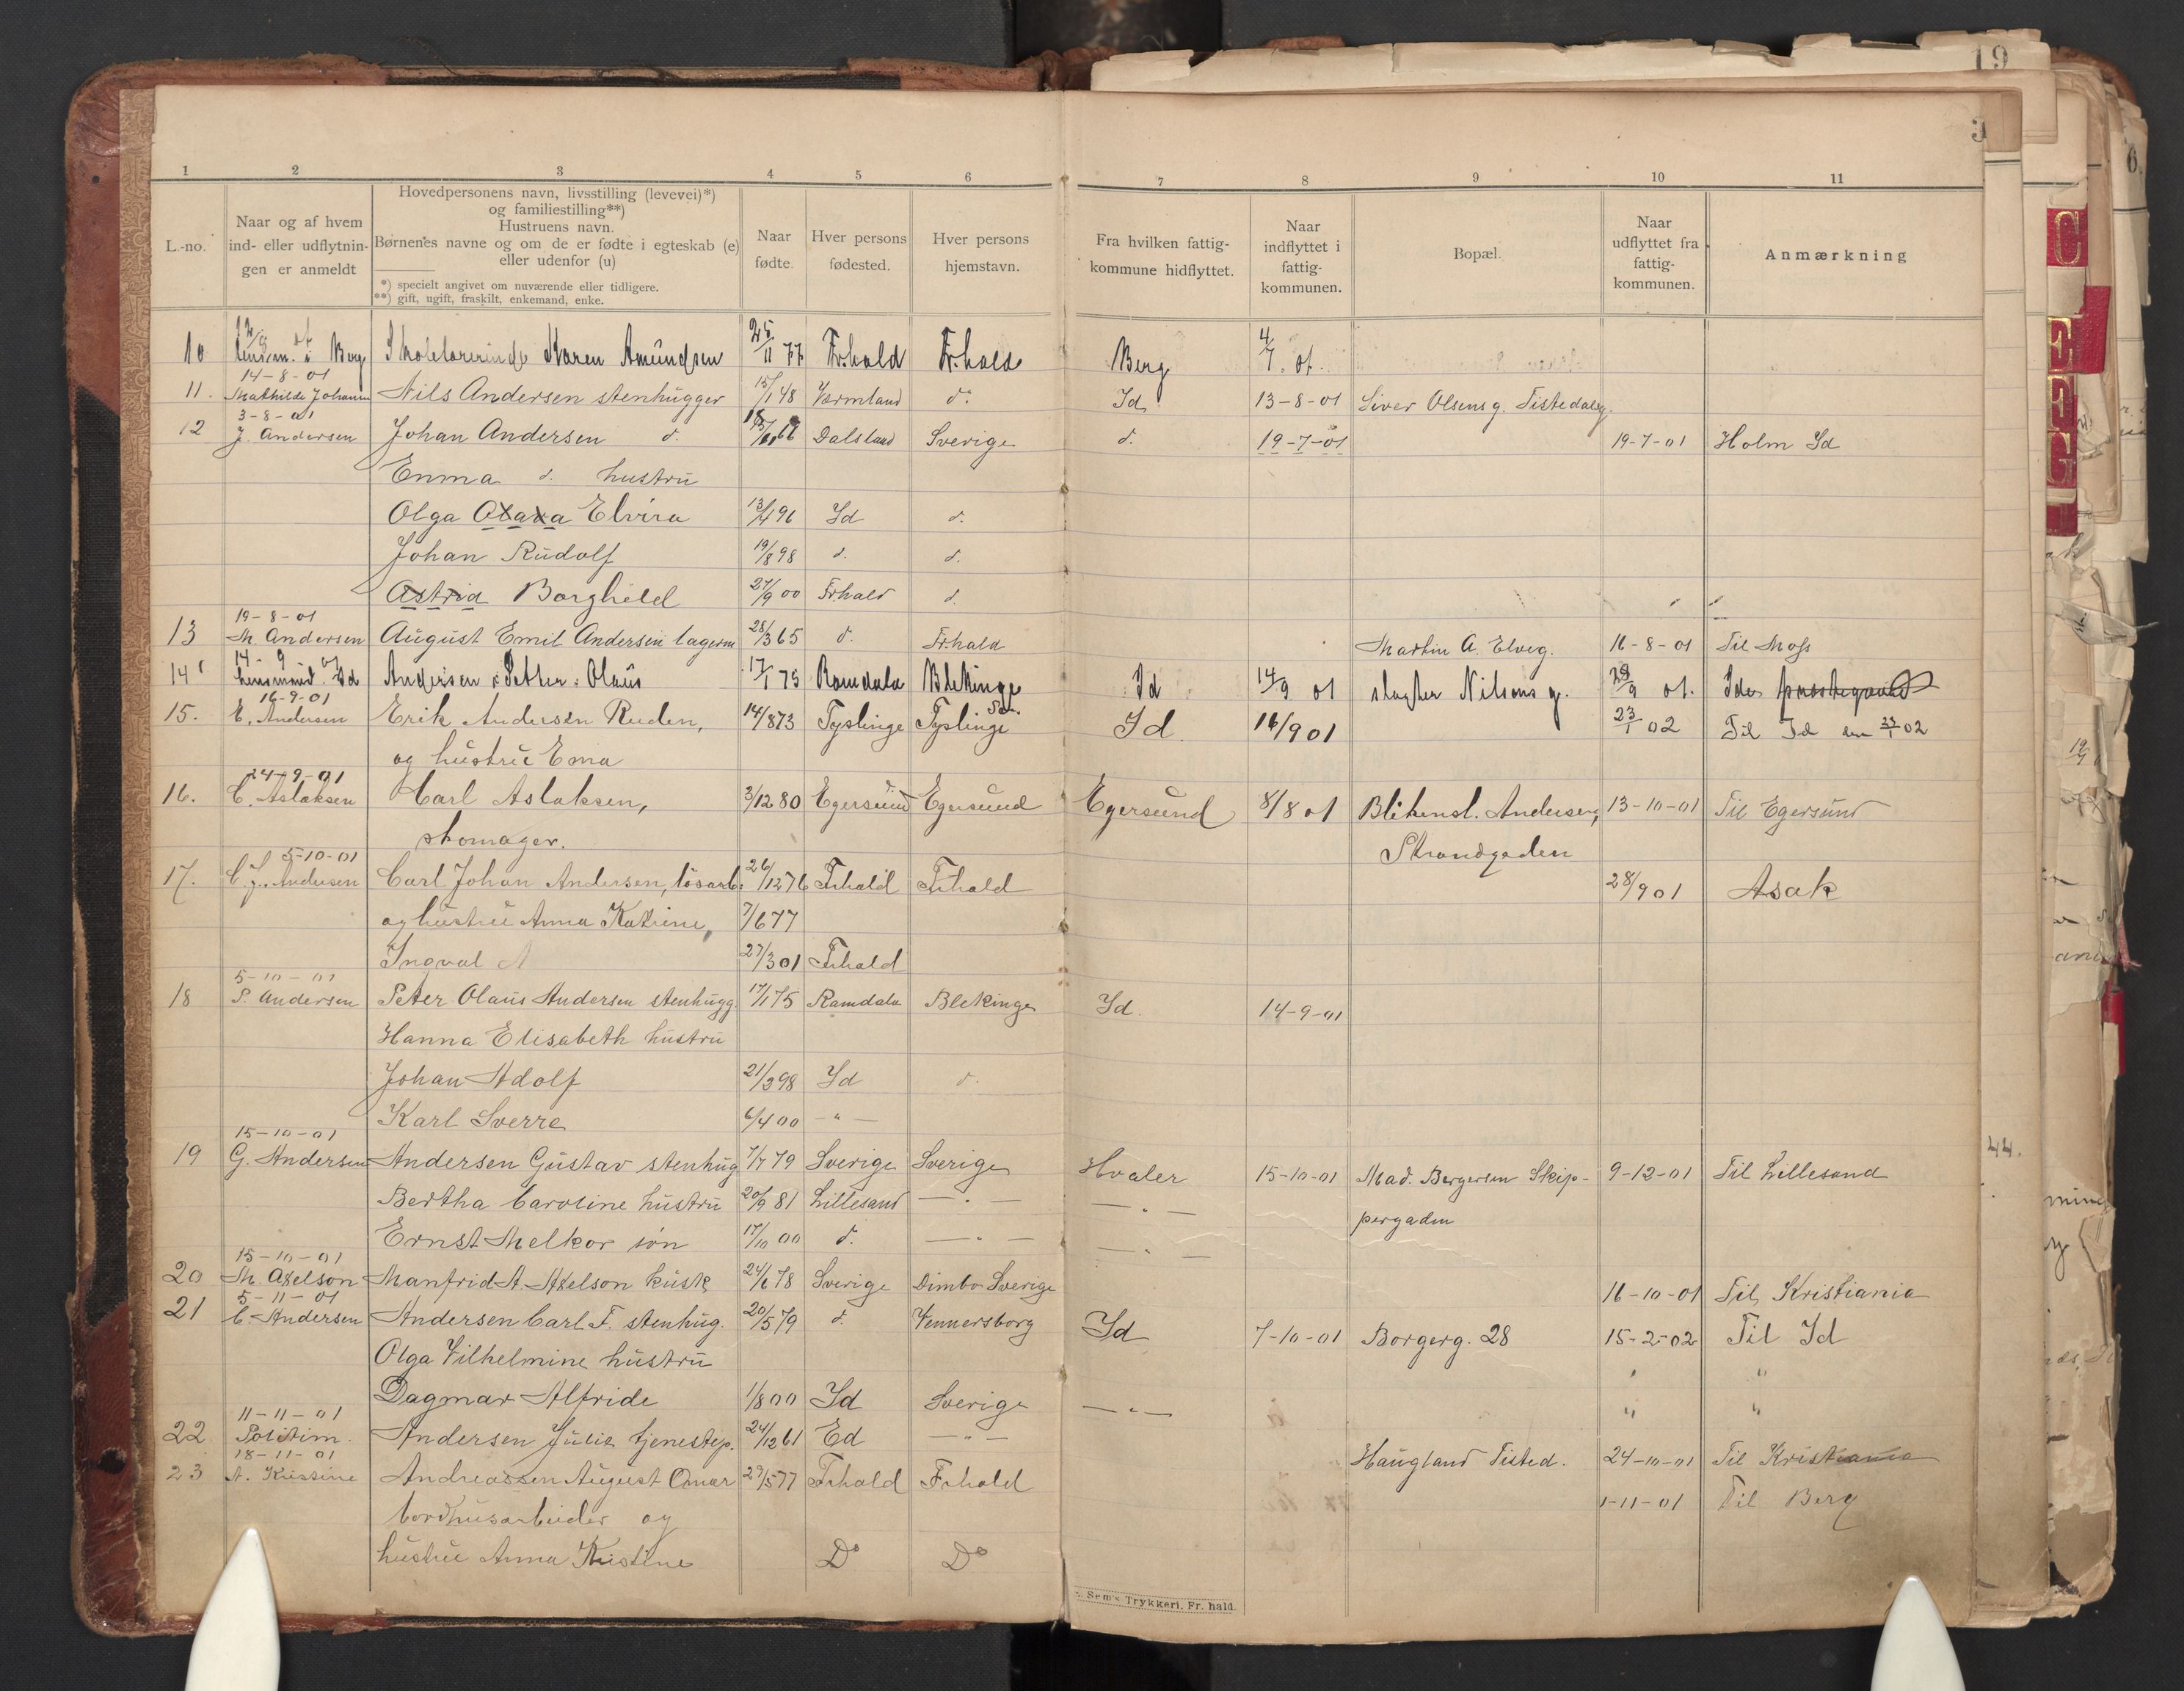 19
1 2 3 4 5 6 7 8 9 10 11
L.-no.
Naar og af hvem
ind- eller udflytnin-
gen er anmeldt
Hovedpersonens navn, livsstilling (levevei)*)
og familiestilling**)
Hustruens navn.
Børnenes navne og om de er fødte i egteskab (e)
eller udenfor (u)
*) specielt angivet om nuværende eller tidligere.
**) gift, ugift, fraskilt, enkemand, enke.
Naar
fødte.
Hver persons
fødested.
Hver persons
hjemstavn.
Fra hvilken fattig-
kommune hidflyttet.
Naar
indflyttet i
fattig-
kommunen.
Bopæl.
Naar
udflyttet fra
fattig-
kommunen.
Anmærkning
10 Lensm. i Berg Skolelærerinde Karen Amundsen 25/11 77 Fr.hald Fr.hald Berg 4/7. 01.
14-8-01
11. Mathilde Johansen Nils Andersen stenhugger 15/1 48 Vermland d. Id 13-8-01 Siver Olsens g. Tistedalsg.
3-8-01
12 J. Andersen Johan Andersen d. Dalsland Sverige d. 19-7-01 19-7-01 Holm Id
Emma d. hustru
Olga Olava Elvira 13/4 96 Id d.
Johan Rudolf 19/8 98 d. d.
Astrid Borghild 27/9 00 Fr.hald d.
19-8-01
13 M. Andersen August Emil Andersen lagerm 28/3 65 d. Fr.hald Martin A. Elveg. 16-8-01 Til Moss
14-9 01
14 Lensmand Id Andersen Petter Olaus 17/1 75 Ramdala Blekinge Id 14/9 01 slagter Nilsens g. 29/9 01. Ide præstegaard
16-9-01
15. E. Andersen Erik Andersen Ruden, 14/8 73 Tyslinge Tyslinge Sv. Id. 16/9 01 23/1 02 Til Id den 23/1 02
og hustru Ema
24-9-01
16. C. Aslaksen Carl Aslaksen, 3/12 80 Egersund Egersund Egersund 8/8 01 Blikensl. Andersen, 13-10-01 Til Egersund
skomager. Strandgaden
5-10-01
17. C. J. Andersen Carl Johan Andersen, løsarb. 26/12 76 Frhald Frhald 28/9 01 Asak
og hustru Anna Katrine, 7/6 77
Ingval A 27/3 01 Frhald
5-10-01
18 P. Andersen Peter Olaus Andersen stenhugg. 17/1 75 Ramdala Blekinge Id. 14-9-01
Hanna Elisabeth hustru
Johan Adolf 21/3 98 Id d.
Karl Sverre 6/4 00 - " -
15-10-01
19 G. Andersen Andersen Gustav stenhug 7/7 79 Sverige Sverige Hvaler 15-10-01 Mad. Bergersen Skip- 9-12-01 Til Lillesand
Bertha Caroline hustru 20/9 81 Lillesand - " - - " - pergaden
Ernst Melkor søn 17/10 00 d. - " - - " -
15-10-01
20 M. Axelson Manfrid A. Axelson kusk 24/6 78 Sverige Dimbo Sverige 16-10-01 Til Kristiania
5-11-01
21 C. Andersen Andersen Carl F. stenhug. 20/5 79 d. Vennersborg Id 7-10-01 Borgerg. 28 15-2-02 Til Id
Olga Vilhelmine hustru " "
Dagmar Alfride 1/8 00 Id Sverige - " - " "
11-11-01
22 Politim. Andersen Julie tjenestep. 24/12 61 Ed - " - Haugland Tisted. 24-10-01 Til Kristiania
18-11-01
23 A. Kristine Andreassen August Omar 29/5 77 Frhald Frhald 1-11-01 Til Berg
bordhusarbeider og
hustru Anna Kristine Do Do
Sem's Trykkeri, Fr. hald.